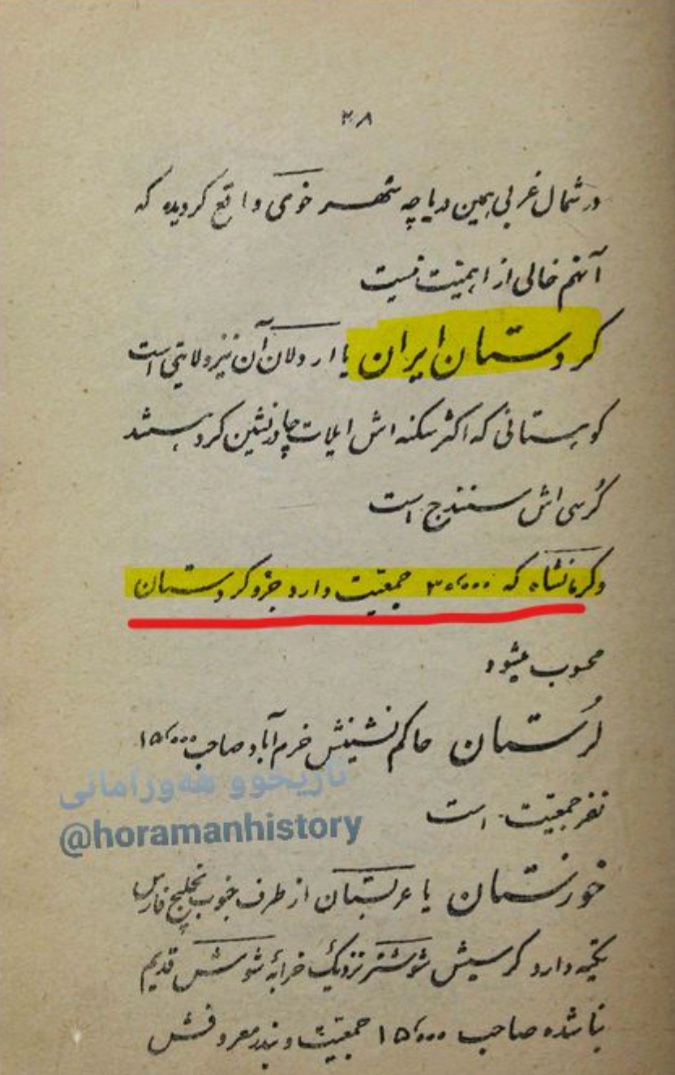 ۲۸
در شمال غربی همین دریاچه شهر خوی واقع گردیده که
آنهم خالی از اهمیّت نیست
کردستان ایران یا اردلان آن نیز ولایتی است
کوهستانی که اکثر سکنه اش ایلات چادرنشین کرد هستند
کُرسی اش سنندج است
وکرمانشاه که ۳۰٬۰۰۰ جمعیّت دارد جزو کردستان
محسوب میشود
لُرستان حاکم نشینش خرم آباد صاحب ۱۵٬۰۰۰
نفر جمعیّت است
تاریخوو هەورامانی
@horamanhistory
خوزستان یا عربستان از طرف جنوب بخلیج فارس
تکیه دارد کرسیش شوشتر نزدیک خرابهٔ شوش قدیم
بنا شده صاحب ۱۵٬۰۰۰ جمعیّت و بندر معروفش